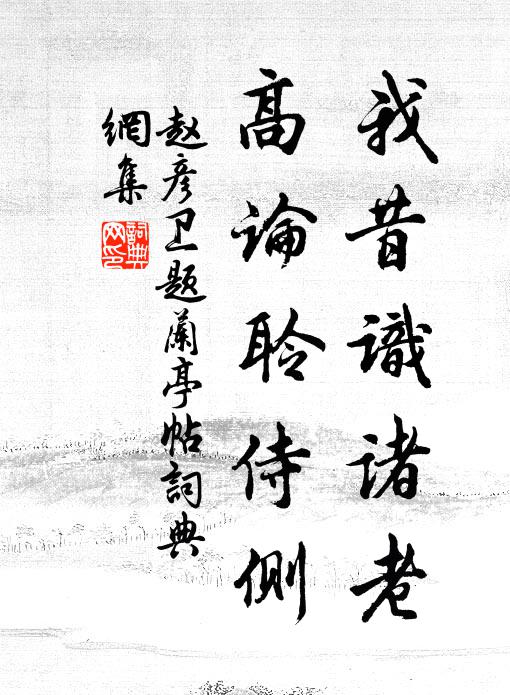 我昔識诸老
高論聆侍側
赵彦卫题蘭亭帖詞典
網集
詞典网印